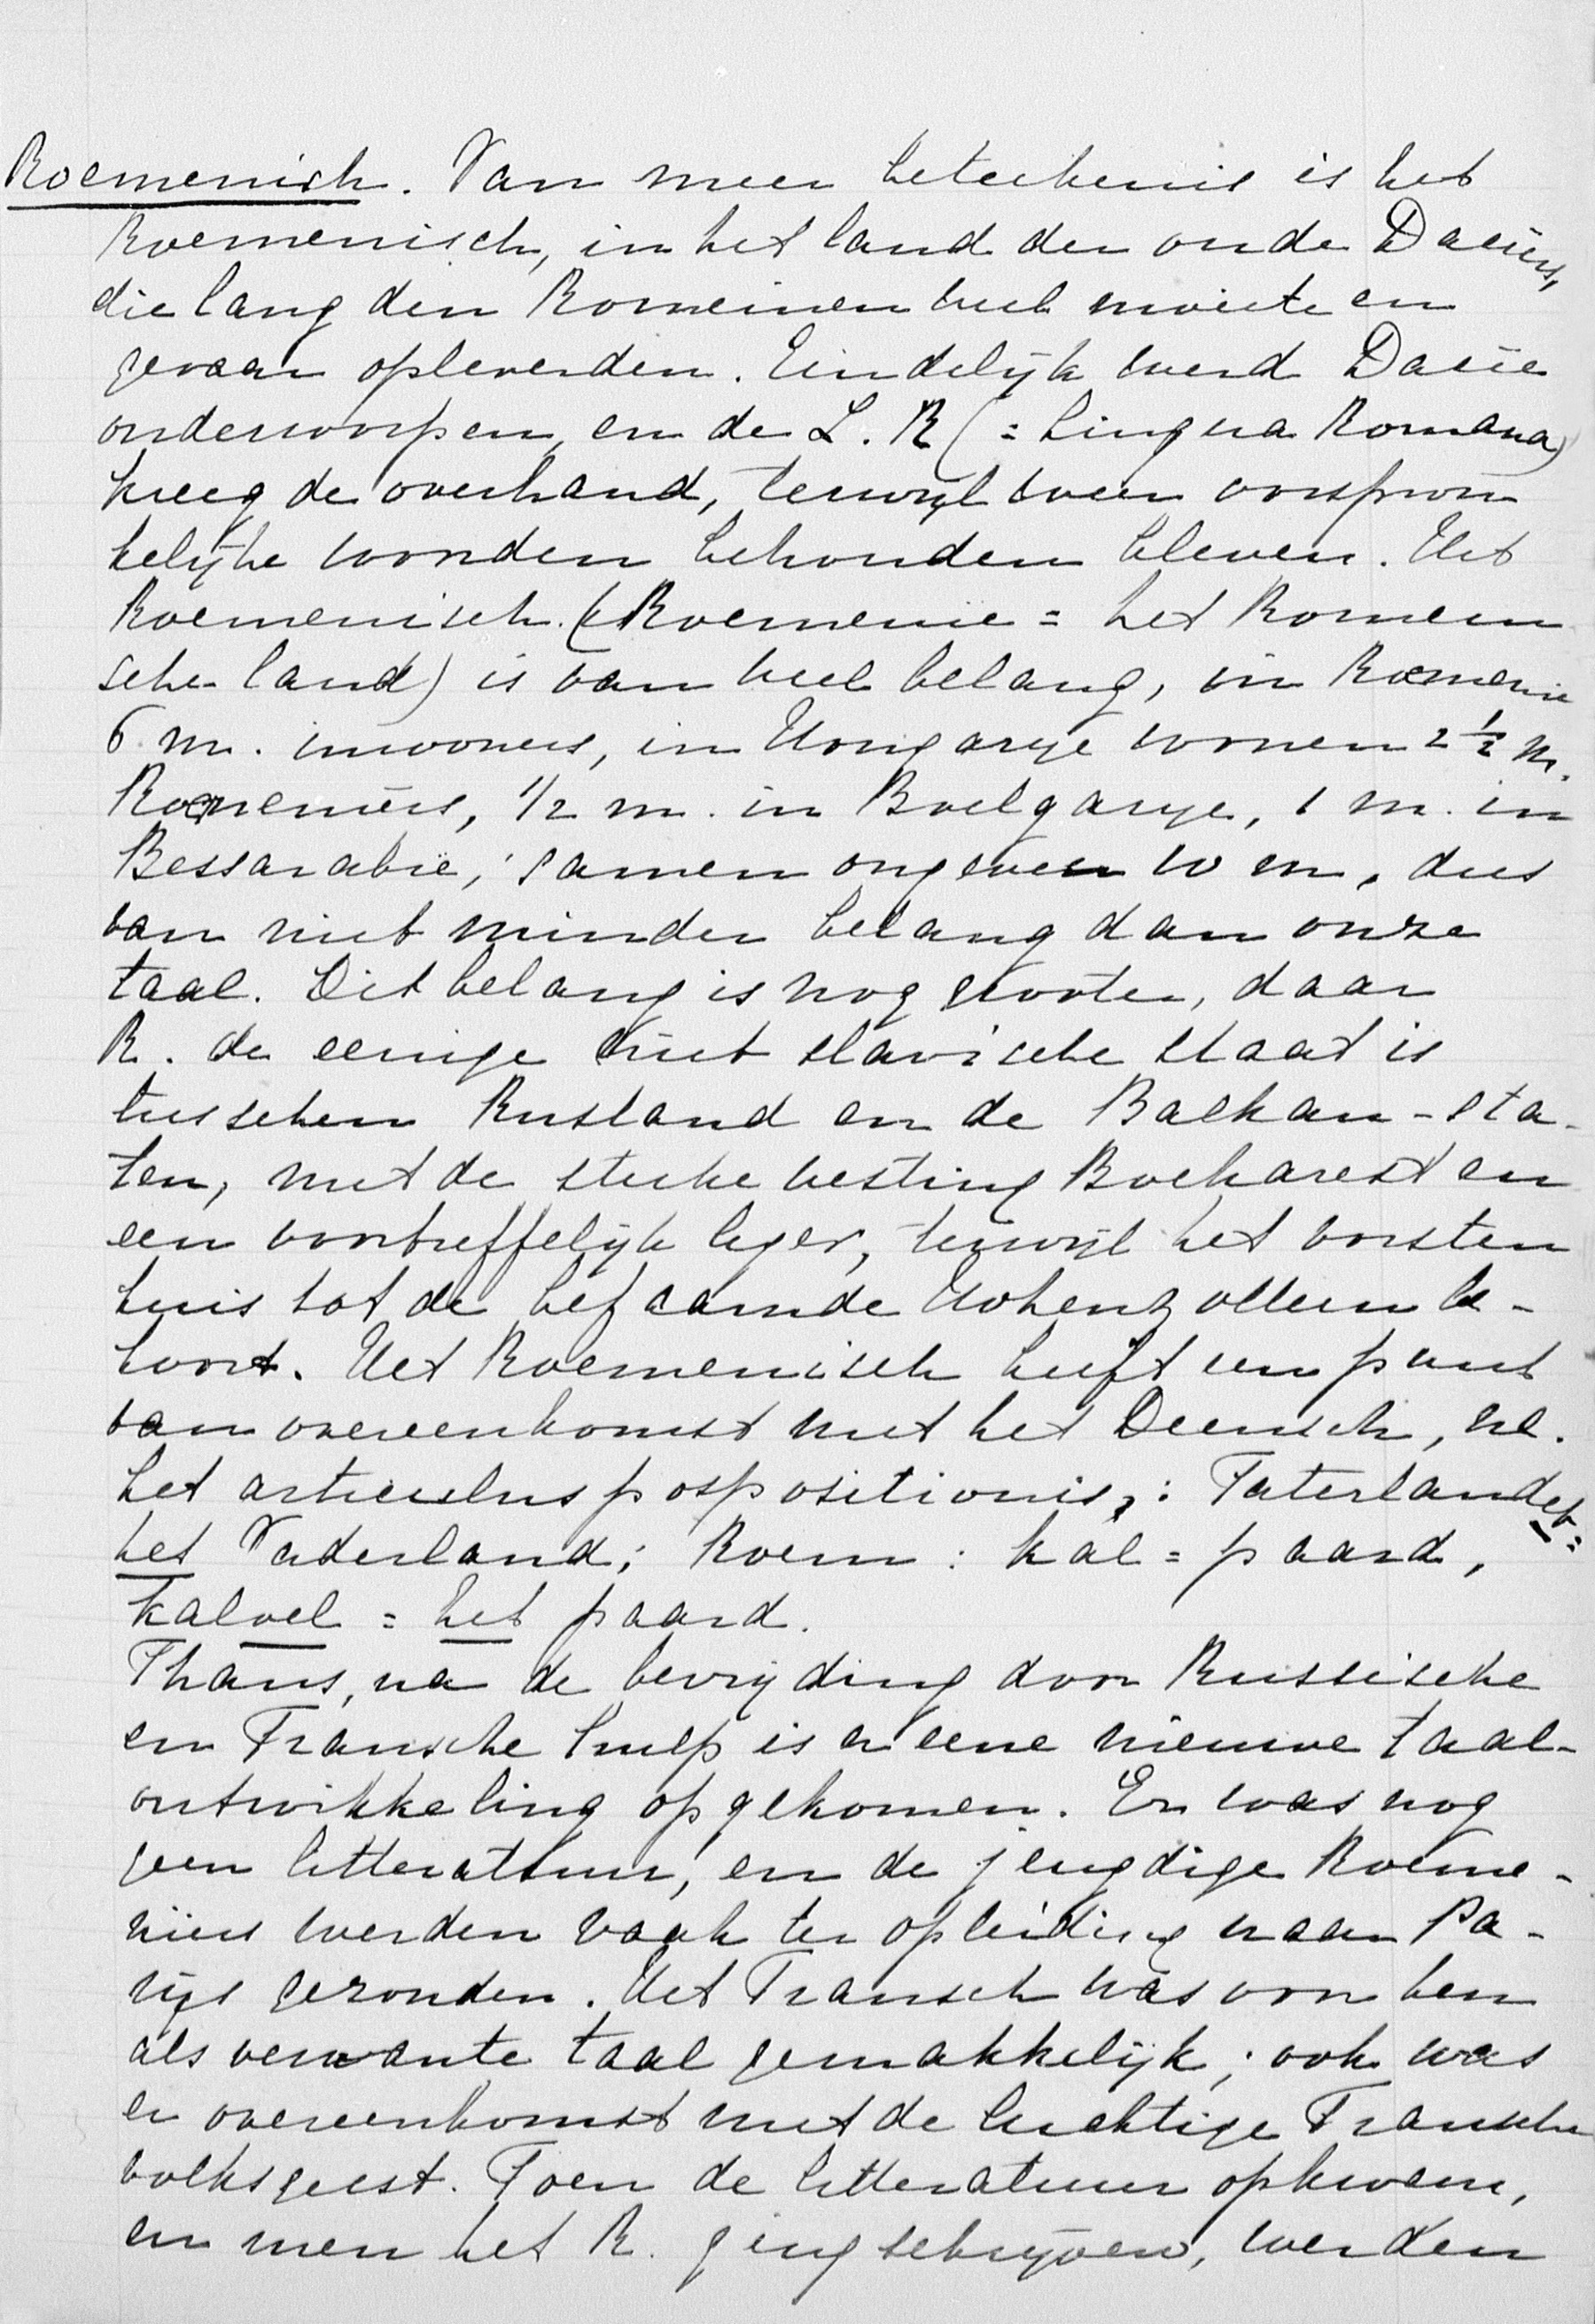 Roemenisch. Van meer beteekenis is het
Roemenisch, in het land der oude Daciërs,
die lang den Romeinen veel moeite en
gevaar opleverden. Eindelijk werd Dacië
onderworpen, en de L. R (= Lingua Romana)
kreeg de overhand, terwijl weer oorspron
kelijke woorden behouden bleven. Het
Roemenisch. (Roemenie = het Romein
sche land) is van veel belang, in Roemenie
6 m. inwoners, in Hongarije wonen 2 ½ m.
Roemeniërs, 1/2 m. in Boelgarije, 1 m. in
Bessarabië, samen ongeveer 10 m, dus
van niet minder belang dan onze
taal. Dit belang is nog grooter, daar
R. de eenige niet slavische staat is
tusschen Rusland en de Balkan-sta-
ten, met de sterke vesting Boekarest en
een voortreffelijk leger, terwijl het vorsten
huis tot de befaamde Hohenzollern be-
hoort. Het Roemenisch heeft een punt
van overeenkomst met het Deensch, nl.
het articulus pospositionis,: Faterlandet =
het Vaderland; Roem: kal = paard,
kaloel = het paard.
Thans, na de bevrijding door Russische
en Fransche hulp is er eene nieuwe taal-
ontwikkeling opgekomen. Er was nog
geen litteratuur, en de jeugdige Roeme-
niërs werden vaak ter opleiding naar Pa-
rijs gezonden. Het Fransch was voor hen
als verwante taal gemakkelijk; ook was
er overeenkomst met de luchtige Fransche
volksgeest. Toen de litteratuur opkwam,
en men het R. ging schrijven, werden